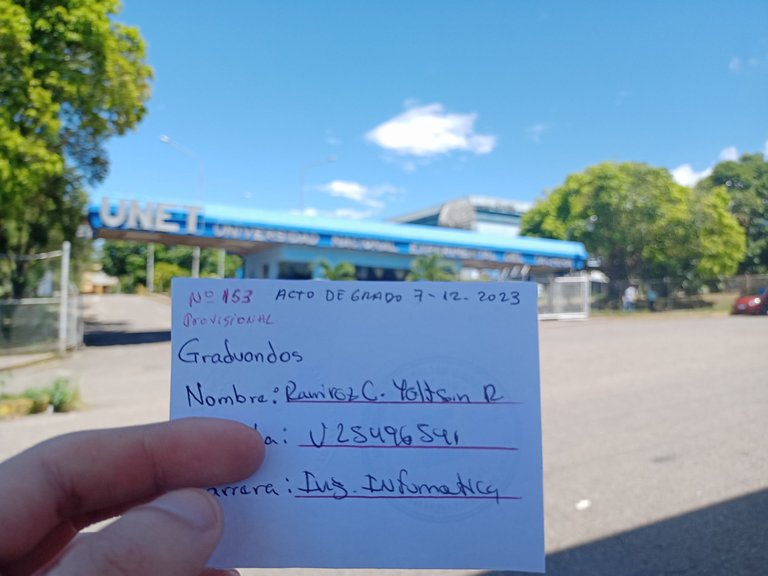 UNET UNIVERSIDAD NACIONAL EXPERIMENTAL DEL
Nº 153 ACTO DE GRADO 7-12-2023
PROVISIONAL
Graduondos
Nombre: Ramirez C. Yoltsin R
la: V25496541
arrera: Ing. Informatica